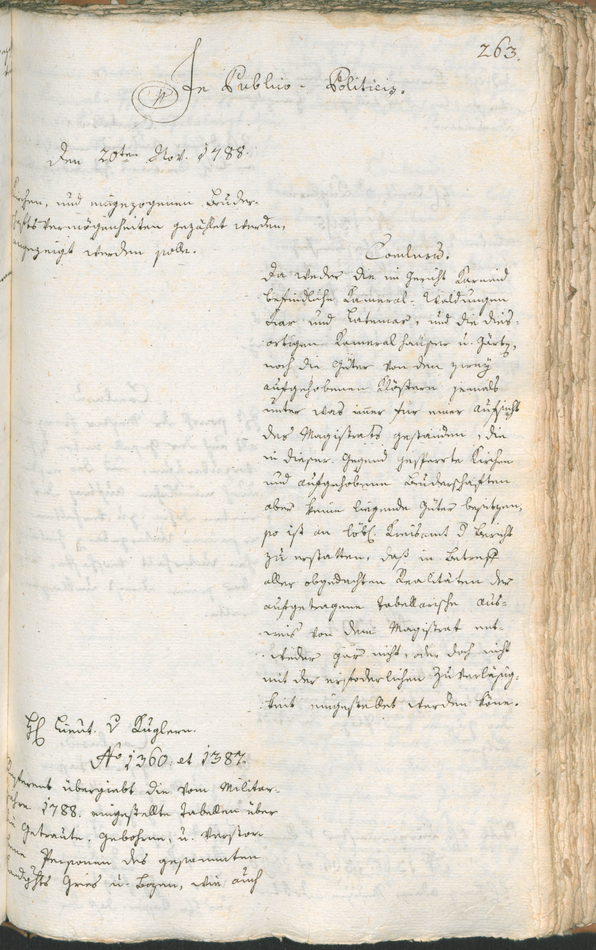 263.
In Publico-Politicis.
den 20ten Nov. 1788.
Kirchen, und eingezogenen Bruder-
schaftsvermögenheiten gezählet werden,
angezeigt werden solle.
Conclusum.
Da weder die im Gericht Karneid
befindliche Kameral-Waldungen
und Latemar, und die dies-
ortigen Kameral häuser u. Gärten,
noch die Güter von den zwey
aufgehobenen Klöstern jemals
unter was imer für einer aufsicht
des Magistrats gestanden, die
in dieser Gegend gesperrte Kirchen
und aufgehobene Bruderschaften
aber keine liegende Güter besitzen,
so ist an löbl. Kreisamt d Bericht
zu erstatten, daß in Betreff
aller obgedachten Realitäten der
aufgetragene tabellarische Aus-
weis von dem Magistrat ent-
weder gar nicht, oder doch nicht
mit der erforderlichen Zuverläßig-
keit eingestellet werden köne.
H Lieut. v Kuglern.
No 1360. et 1387.
Referent übergiebt die vom Militar-
jahre 1788. eingestellte Tabellen über
Getraute, Gebohrne, u. Verstor-
bene Personen des gesammten
Landgchts Gries u. Bozen, wie auch